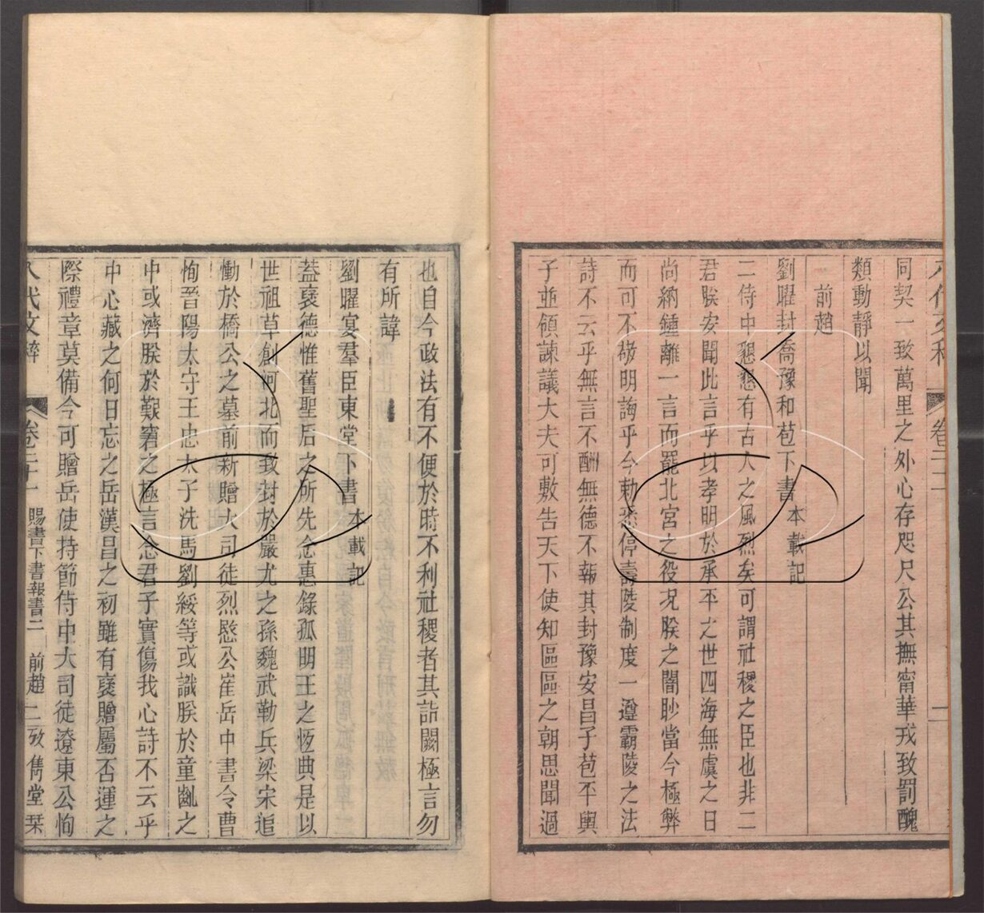 同契一致萬里之外心存咫尺公其撫甯華戎致罰醜
類動靜以聞
前趙
劉曜封喬豫和苞下書 本載記
二侍中懇懇有古人之風烈矣可謂社稷之臣也非二
君朕安聞此言乎以孝明於承平之世四海無虞之日
尚納鍾離一言而罷北宮之役況朕之闇眇當今極弊
而可不敬明誨乎今勅悉停壽陵制度一遵霸陵之法
詩不云乎無言不酬無德不報其封豫安昌子苞平輿
子並領諫議大夫可敷告天下使知區區之朝思聞過
也自今政法有不便於時不利社稷者其詣闕極言勿
有所諱
劉曜宴羣臣東堂下書 本載記
蓋褒德惟舊聖后之所先念惠錄孤明王之恆典是以
世祖草創河北而致封於嚴尤之孫魏武勒兵梁宋追
慟於橋公之墓前新贈大司徒烈愍公崔岳中書令曹
恂晉陽太守王忠太子洗馬劉綏等或識朕於童齓之
中或濟朕於艱窘之極言念君子實傷我心詩不云乎
中心藏之何日忘之岳漢昌之初雖有褒贈屬否運之
際禮章莫備今可贈岳使持節侍中大司徒遼東公恂
八代文粹 卷二十一 賜書下書報書二 前趙 二 攷雋堂栞